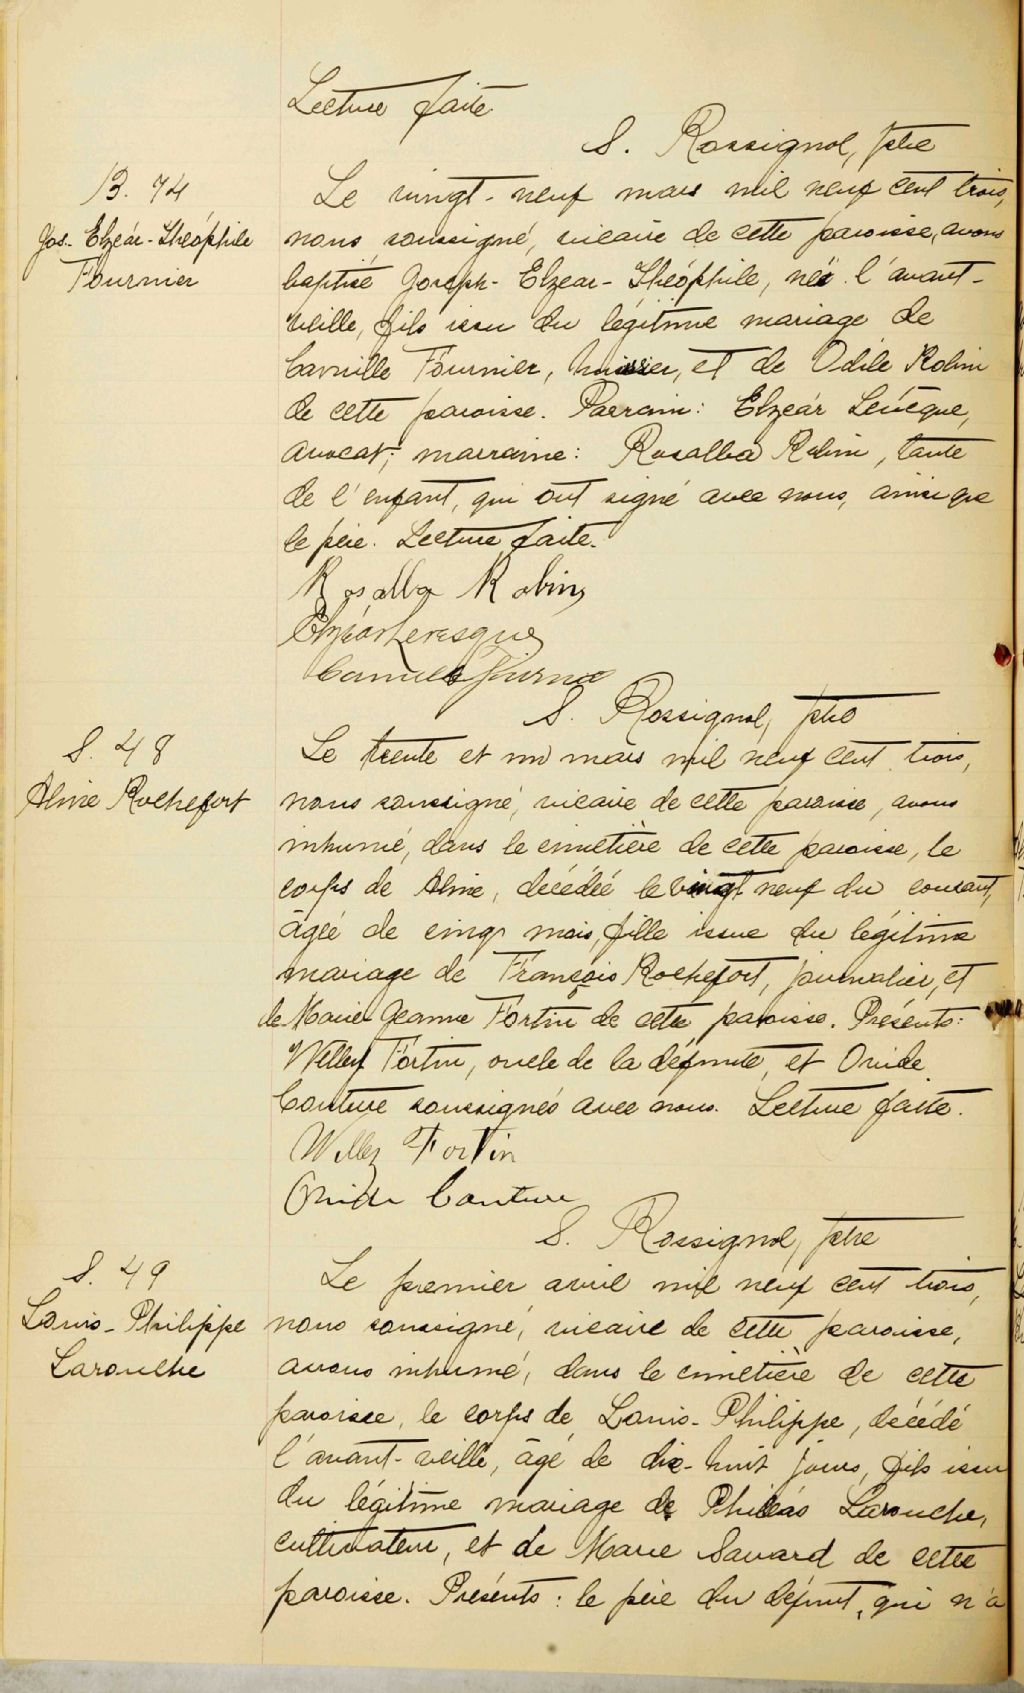 Lecture faite
S. Rossignol, ptre
B. 74
Jos.- Elzéar-Théophile
Fournier
Le vingt-neuf mars mil neuf cent trois,
nous soussigné, vicaire de cette paroisse, avons
baptisé Joseph-Elzéar-Théophile, né l'avant-
veille, fils issu du légitime mariage de
Camille Fournier, huissier, et de Odile Robin
de cette paroisse. Parrain: Elzéar Levêque,
avocat; marraine: Rosalba Robin, tante
de l'enfant, qui ont signé avec nous, ainsi que
le père. Lecture faite.
Rosalba Robin
Elzéar Levesque
Camille Fournier
S. Rossignol, ptre
S. 48
Aline Rochefort
Le trente et un mars mil neuf cent trois,
nous soussigné, vicaire de cette paroisse, avons
inhumé, dans le cimetière de cette paroisse, le
corps de Aline, décédée le vingt neuf du courant,
âgée de cinq mois, fille issue du légitime
mariage de François Rochefort, journalier, et
de Marie-Jeanne Fortin de cette paroisse. Présents:
Willey Fortin, oncle de la défunte, et Ovide
Couture soussignés avec nous. Lecture faite.
Willey Fortin
Ovide Couture
S. Rossignol, ptre
S. 49
Louis-Philippe
Larouche
Le premier avril mil neuf cent trois,
nous soussigné, vicaire de cette paroisse,
avons inhumé, dans le cimetière de cette
paroisse, le corps de Louis-Philippe, décédé
l'avant-veille, âgé de dix-huit jours, fils issu
du légitime mariage de Philéas Larouche,
cultivateur, et de Marie Savard de cette
paroisse. Présents: le père du défunt, qui n'a